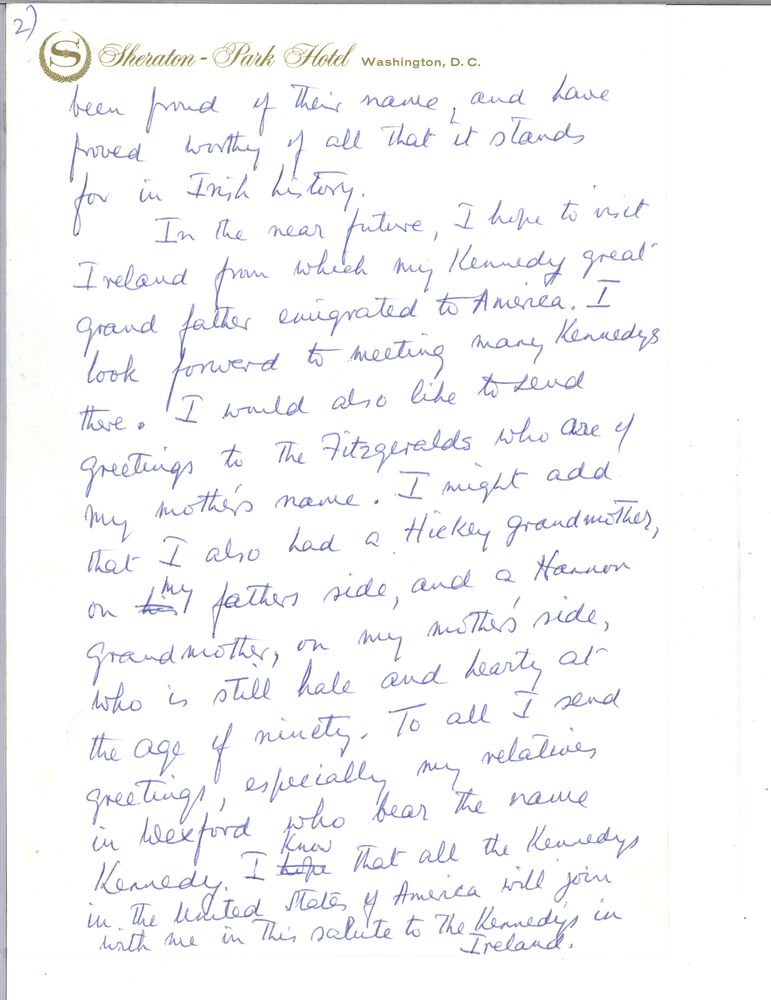 2)
S Sheraton-Park Hotel Washington, D. C.
been proud of their name, and have
proved worthy of all that it stands
for in Irish history.
In the near future, I hope to visit
Ireland from which my Kennedy great
grand father emigrated to America. I
look forward to meeting many Kennedys
there. I would also like to send
greetings to the Fitzgeralds who are of
my mother's name. I might add
that I also had a Hickey grandmother,
on his my fathers side, and a Hannon
grandmother, on my mother's side,
who is still hale and hearty at
the age of ninety. To all I send
greetings, especially my relatives
in Wexford who bear the name
Kennedy. I hope know that all the Kennedys
in the United States of America will join
with me in this salute to the Kennedys in
Ireland.